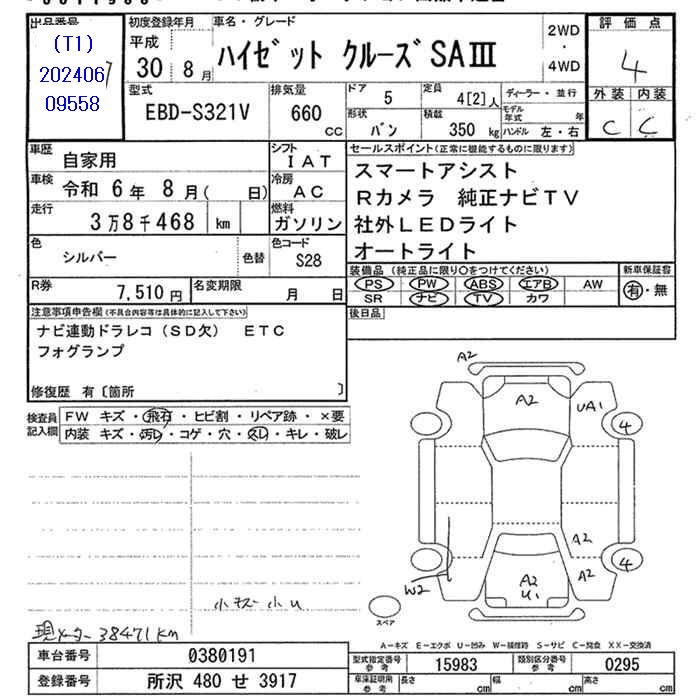 出品番号
(T1)
202406/
09558
初度登録年月
平成
30 8 月
車名・グレード
ハイゼット クルーズ SAⅢ
2WD
・
4WD
評価点
4
外装 内装
C C
型式
EBD-S321V
排気量
660
cc
ドア
5
定員
4[2]人
ディーラー・並行
モデル年式 年
形状
バン
積載
350 kg
ハンドル 左・右
車歴
自家用
シフト
IAT
車検 令和 6年 8月( 日)
冷房
AC
走行
3万8千468 km
燃料
ガソリン
色
シルバー
色替
色コード
S28
R券
7,510円
名変期限
月 日
セールスポイント(正常に機能するものに限ります)
スマートアシスト
Rカメラ 純正ナビTV
社外LEDライト
オートライト
装備品 (純正品に限り○をつけてください)
PS PW ABS エアB AW
SR ナビ TV カワ
新車保証書
有・無
後日品
注意事項申告欄(不具合内容等は具体的に記入して下さい)
ナビ連動ドラレコ(SD欠) ETC
フォグランプ
修復歴 有〔箇所 〕
検査員記入欄
FW キズ・飛石・ヒビ割・リペア跡・×要
内装 キズ・汚レ・コゲ・穴・スレ・キレ・破レ
A2
A2
UA1
4
4
A2
A2
A2
U1
W2
スペア
小キズ小U
現メーター 38471km
A−キズ E−エクボ U−凹み W−補修跡 S−サビ C−腐食 XX−交換済
車台番号 0380191
登録番号 所沢 480 せ 3917
型式指定番号 参考 15983
類別区分番号 参考 0295
車庫証明用 参考 長さ cm 幅 cm 高さ cm